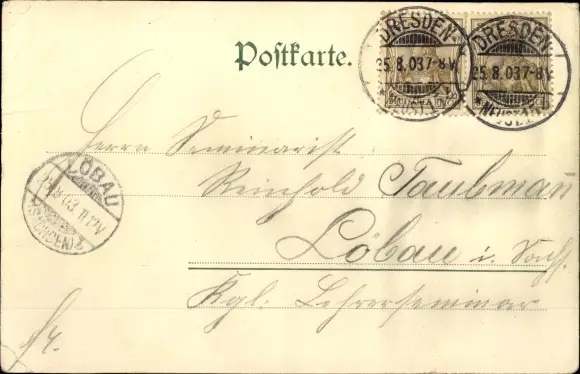 Postkarte.
DRESDEN-
25.8.03.7-8V.
DRESDEN-
25.8.03.7-8V.
Herrn Seminarist
Reinhold Taubman
Löbau i. Sachs.
Kgl. Lehrerseminar
LÖBAU
8 03 11-12V
(SACHSEN)